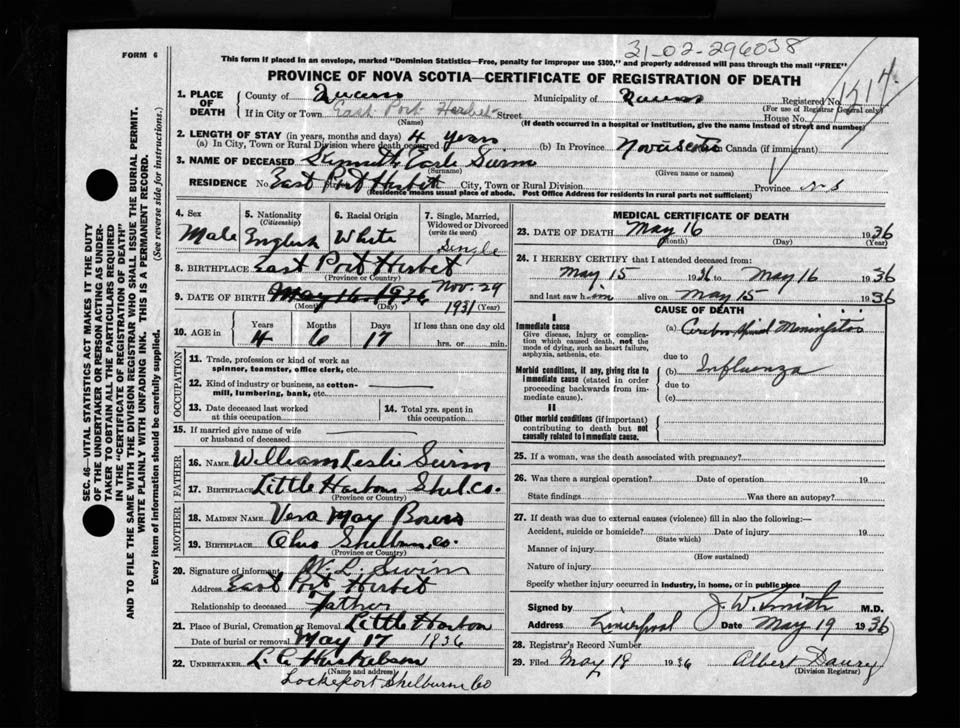 FORM 6
31-02-296038
This form if placed in an envelope, marked "Dominion Statistics—Free, penalty for improper use $300," and properly addressed will pass through the mail "FREE"
PROVINCE OF NOVA SCOTIA—CERTIFICATE OF REGISTRATION OF DEATH
1. PLACE OF DEATH
County of Queens Municipality of Queens Registered No. 1214
(For use of Registrar General only)
If in City or Town East Port Herbet Street House No.
(Name) (If death occurred in a hospital or institution, give the name instead of street and number)
2. LENGTH OF STAY (in years, months and days) 4 years
(a) In City, Town or Rural Division where death occurred (b) In Province Nova Scotia Canada (if immigrant)
3. NAME OF DECEASED Earle Swim
(Surname) (Given name or names)
RESIDENCE No. East Port Herbet Street City, Town or Rural Division Province N.S
(Residence means usual place of abode. Post Office Address for residents in rural parts not sufficient)
4. Sex
Male
5. Nationality
(Citizenship)
English
6. Racial Origin
White
7. Single, Married, Widowed or Divorced
(write the word)
Single
8. BIRTHPLACE East Port Herbet
(Province or Country)
9. DATE OF BIRTH May 16 1936 Nov. 29
(Month) (Day) 1931 (Year)
10. AGE in Years Months Days If less than one day old
4 6 17 hrs. or min.
OCCUPATION
11. Trade, profession or kind of work as spinner, teamster, office clerk, etc.
12. Kind of industry or business, as cotton-mill, lumbering, bank, etc.
13. Date deceased last worked at this occupation
14. Total yrs. spent in this occupation
15. If married give name of wife or husband of deceased
FATHER
16. NAME William Leslie Swim
17. BIRTHPLACE Little Harbour Shel. Co.
(Province or Country)
MOTHER
18. MAIDEN NAME Vera May Bowers
19. BIRTHPLACE Shelburn, Co.
(Province or Country)
20. Signature of informant W. L. Swim
Address East Port Herbet
Relationship to deceased Father
21. Place of Burial, Cremation or Removal Little Harbor
Date of burial or removal May 17 1936
22. UNDERTAKER L. C.
(Name and address)
Lockeport Shelburne Co
MEDICAL CERTIFICATE OF DEATH
23. DATE OF DEATH May 16 1936
(Month) (Day) (Year)
24. I HEREBY CERTIFY that I attended deceased from:
May 15 1936 to May 16 1936
and last saw him alive on May 15 1936
CAUSE OF DEATH
I
Immediate cause
Give disease, injury or complication which caused death, not the mode of dying, such as heart failure, asphyxia, asthenia, etc.
(a) Cerebro Spinal Meningitis
due to
Morbid conditions, if any, giving rise to immediate cause (stated in order proceeding backwards from immediate cause).
(b) Influenza
due to
(c)
II
Other morbid conditions (if important) contributing to death but not causally related to immediate cause.
25. If a woman, was the death associated with pregnancy?
26. Was there a surgical operation? Date of operation 19
State findings Was there an autopsy?
27. If death was due to external causes (violence) fill in also the following:—
Accident, suicide or homicide? Date of injury 19
(State which)
Manner of injury
(How sustained)
Nature of injury
Specify whether injury occurred in industry, in home, or in public place
Signed by J. W. Smith M.D.
Address Liverpool Date May 19 1936
28. Registrar's Record Number
29. Filed May 19 1936 Albert
(Division Registrar)
SEC. 46—VITAL STATISTICS ACT MAKES IT THE DUTY
OF THE UNDERTAKER OR PERSON ACTING AS UNDERTAKER TO OBTAIN ALL THE PARTICULARS REQUIRED
IN THE "CERTIFICATE OF REGISTRATION OF DEATH"
AND TO FILE THE SAME WITH THE DIVISION REGISTRAR WHO SHALL ISSUE THE BURIAL PERMIT.
WRITE PLAINLY WITH UNFADING INK. THIS IS A PERMANENT RECORD.
Every item of information should be carefully supplied. (See reverse side for instructions.)